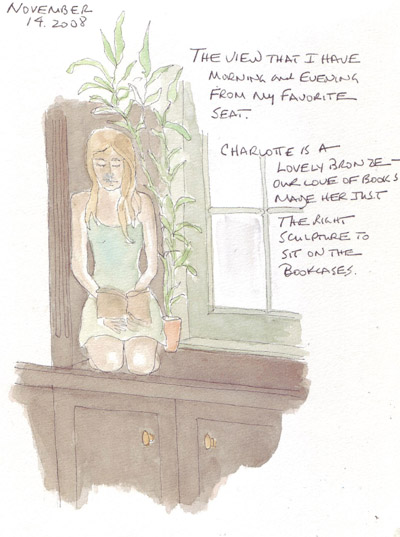 NOVEMBER
14. 2008
THE VIEW THAT I HAVE
MORNING and EVENING
FROM MY FAVORITE
SEAT.
CHARLOTTE IS A
LOVELY BRONZE -
OUR LOVE OF BOOKS
MADE HER JUST
THE RIGHT
SCULPTURE TO
SIT ON THE
BOOKCASES.